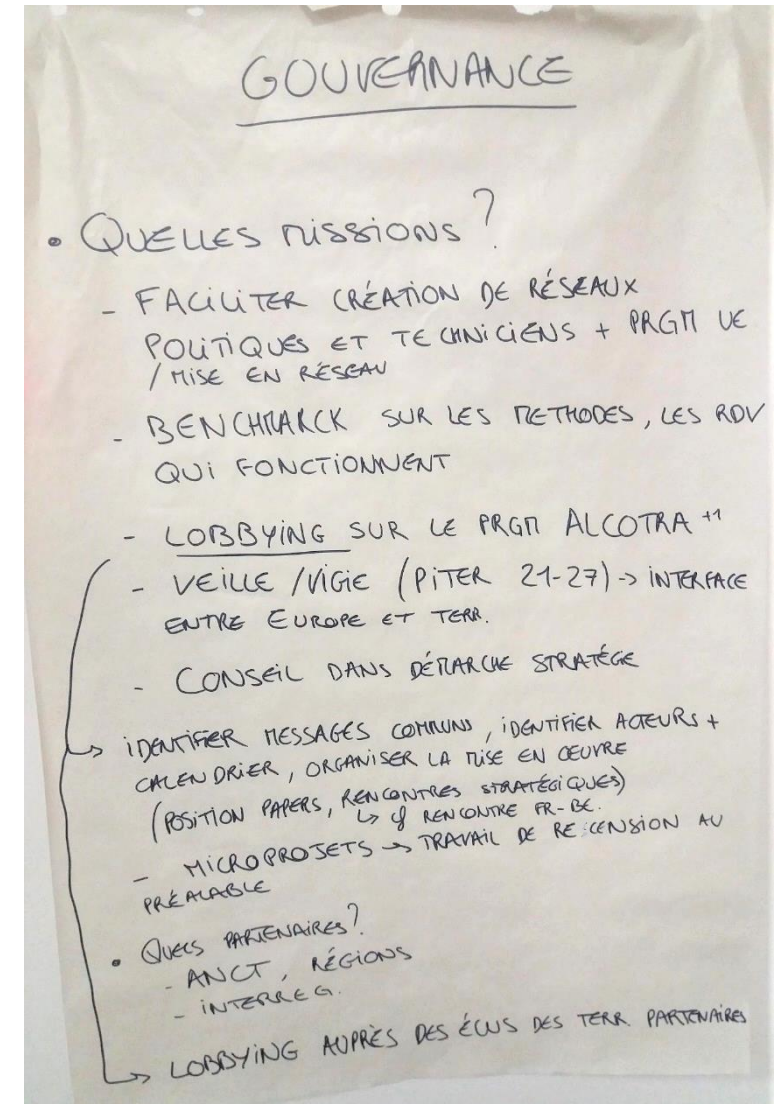 GOUVERNANCE
• QUELLES MISSIONS ?
- FACILITER CRÉATION DE RÉSEAUX
POLITIQUES ET TECHNICIENS + PRGM UE
/ MISE EN RÉSEAU
- BENCHMARCK SUR LES METHODES, LES RDV
QUI FONCTIONNENT
- LOBBYING SUR LE PRGM ALCOTRA +1
- VEILLE / VIGIE (PITER 21-27) -> INTERFACE
ENTRE EUROPE ET TERR.
- CONSEIL DANS DÉMARCHE STRATÉGE
-> IDENTIFIER MESSAGES COMMUNS, IDENTIFIER ACTEURS +
CALENDRIER, ORGANISER LA MISE EN ŒUVRE
(POSITION PAPERS, RENCONTRES STRATÉGIQUES)
↳ cf RENCONTRE FR-BE.
- MICROPROJETS -> TRAVAIL DE RECENSION AU
PRÉALABLE
• QUELS PARTENAIRES ?
- ANCT, RÉGIONS
- INTERREG.
-> LOBBYING AUPRÈS DES ÉLUS DES TERR. PARTENAIRES